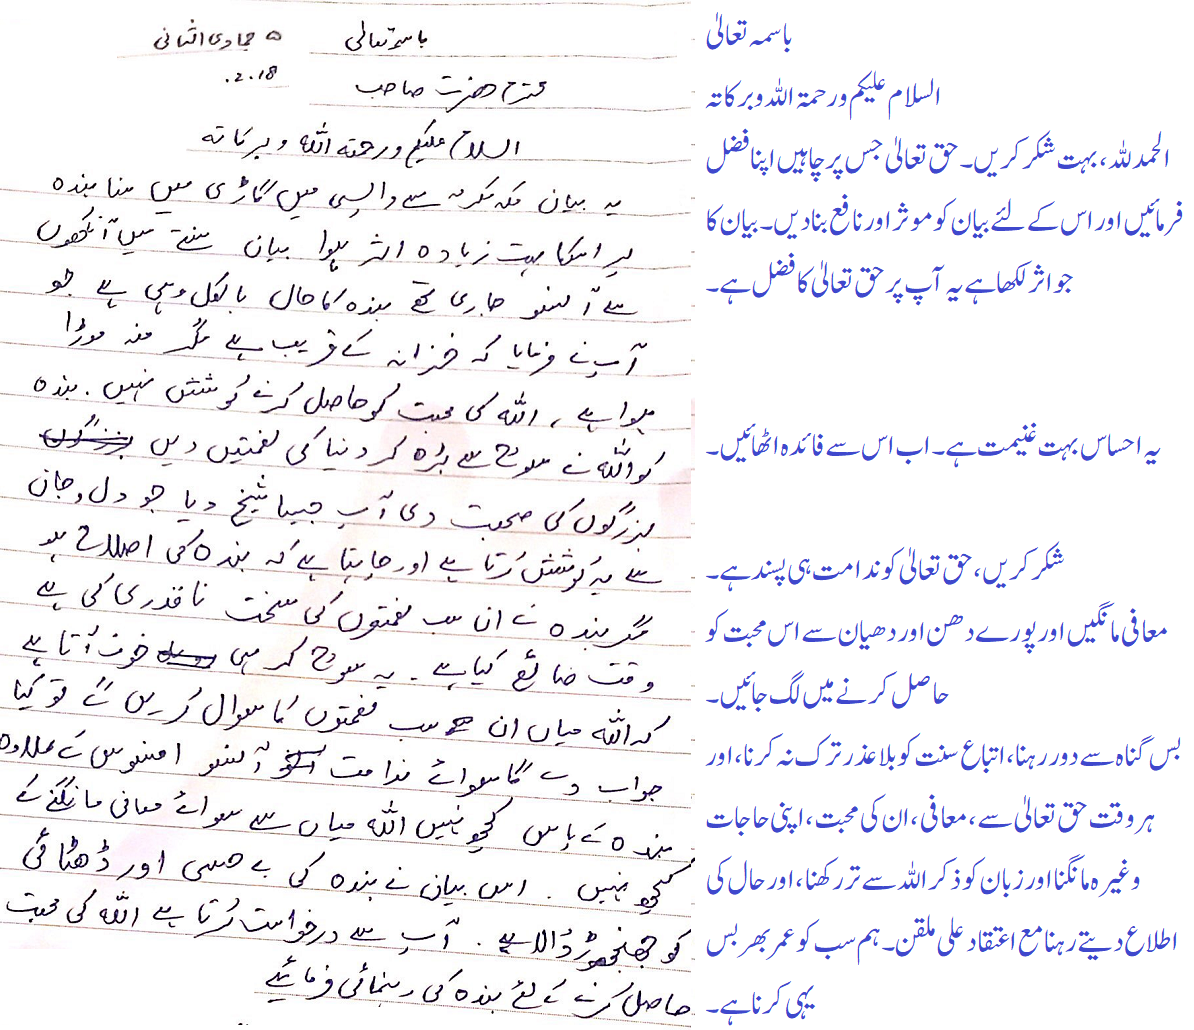 باسمہ تعالیٰ
۵ جمادی الثانی
۲.۱۸.
محترم حضرت صاحب
السلام علیکم ورحمتہ اللہ وبرکاتہ
یہ بیان مکہ مکرمہ سے واپسی میں گاڑی میں سنا بندہ
پر اسکا بہت زیادہ اثر ہوا بیان سنتے میں آنکھوں
سے آنسو جاری تھے بندہ کا حال بالکل وہی ہے جو
آپ نے فرمایا کہ خزانہ کے قریب ہے مگر منہ موڑا
ہوا ہے، اللہ کی محبت کو حاصل کرنے کوشش نہیں. بندہ
کو اللہ نے سوچ سے بڑھ کر دنیا کی نعمتیں دیں بزرگوں
بزرگوں کی صحبت دی آپ جیسا شیخ دیا جو دل و جان
سے یہ کوشش کرتا ہے اور چاہتا ہے کہ بندہ کی اصلاح ہو
مگر بندہ نے ان سب نعمتوں کی سخت ناقدری کی ہے
وقت ضائع کیا ہے. یہ سوچ کر ہی خوف آتا ہے
کہ اللہ میاں ان سب نعمتوں کا سوال کریں گے تو کیا
جواب دے گا سوائے ندامت آنسو افسوس کے علاوہ
بندہ کے پاس کچھ نہیں اللہ میاں سے سوائے معافی مانگنے کے
کچھ نہیں. اس بیان نے بندہ کی بے حسی اور ڈھٹائی
کو جھنجھوڑ ڈالا ہے. آپ سے درخواست کرتا ہے اللہ کی محبت
حاصل کرنے کے لئے بندہ کی رہنمائی فرمائیے
باسمہ تعالیٰ
السلام علیکم ورحمۃ اللہ وبرکاتہ
الحمد للہ، بہت شکر کریں۔ حق تعالیٰ جس پر چاہیں اپنا فضل
فرمائیں اور اس کے لئے بیان کو موثر اور نافع بنا دیں۔ بیان کا
جو اثر لکھا ہے یہ آپ پر حق تعالیٰ کا فضل ہے۔
یہ احساس بہت غنیمت ہے۔ اب اس سے فائدہ اٹھائیں۔
شکر کریں، حق تعالیٰ کو ندامت ہی پسند ہے۔
معافی مانگیں اور پورے دھن اور دھیان سے اس محبت کو
حاصل کرنے میں لگ جائیں۔
بس گناہ سے دور رہنا، اتباع سنت کو بلا عذر ترک نہ کرنا، اور
ہر وقت حق تعالیٰ سے، معافی، ان کی محبت، اپنی حاجات
وغیرہ مانگنا اور زبان کو ذکر اللہ سے تر رکھنا، اور حال کی
اطلاع دیتے رہنا مع اعتقاد علی ملقن۔ ہم سب کو عمر بھر بس
یہی کرنا ہے۔